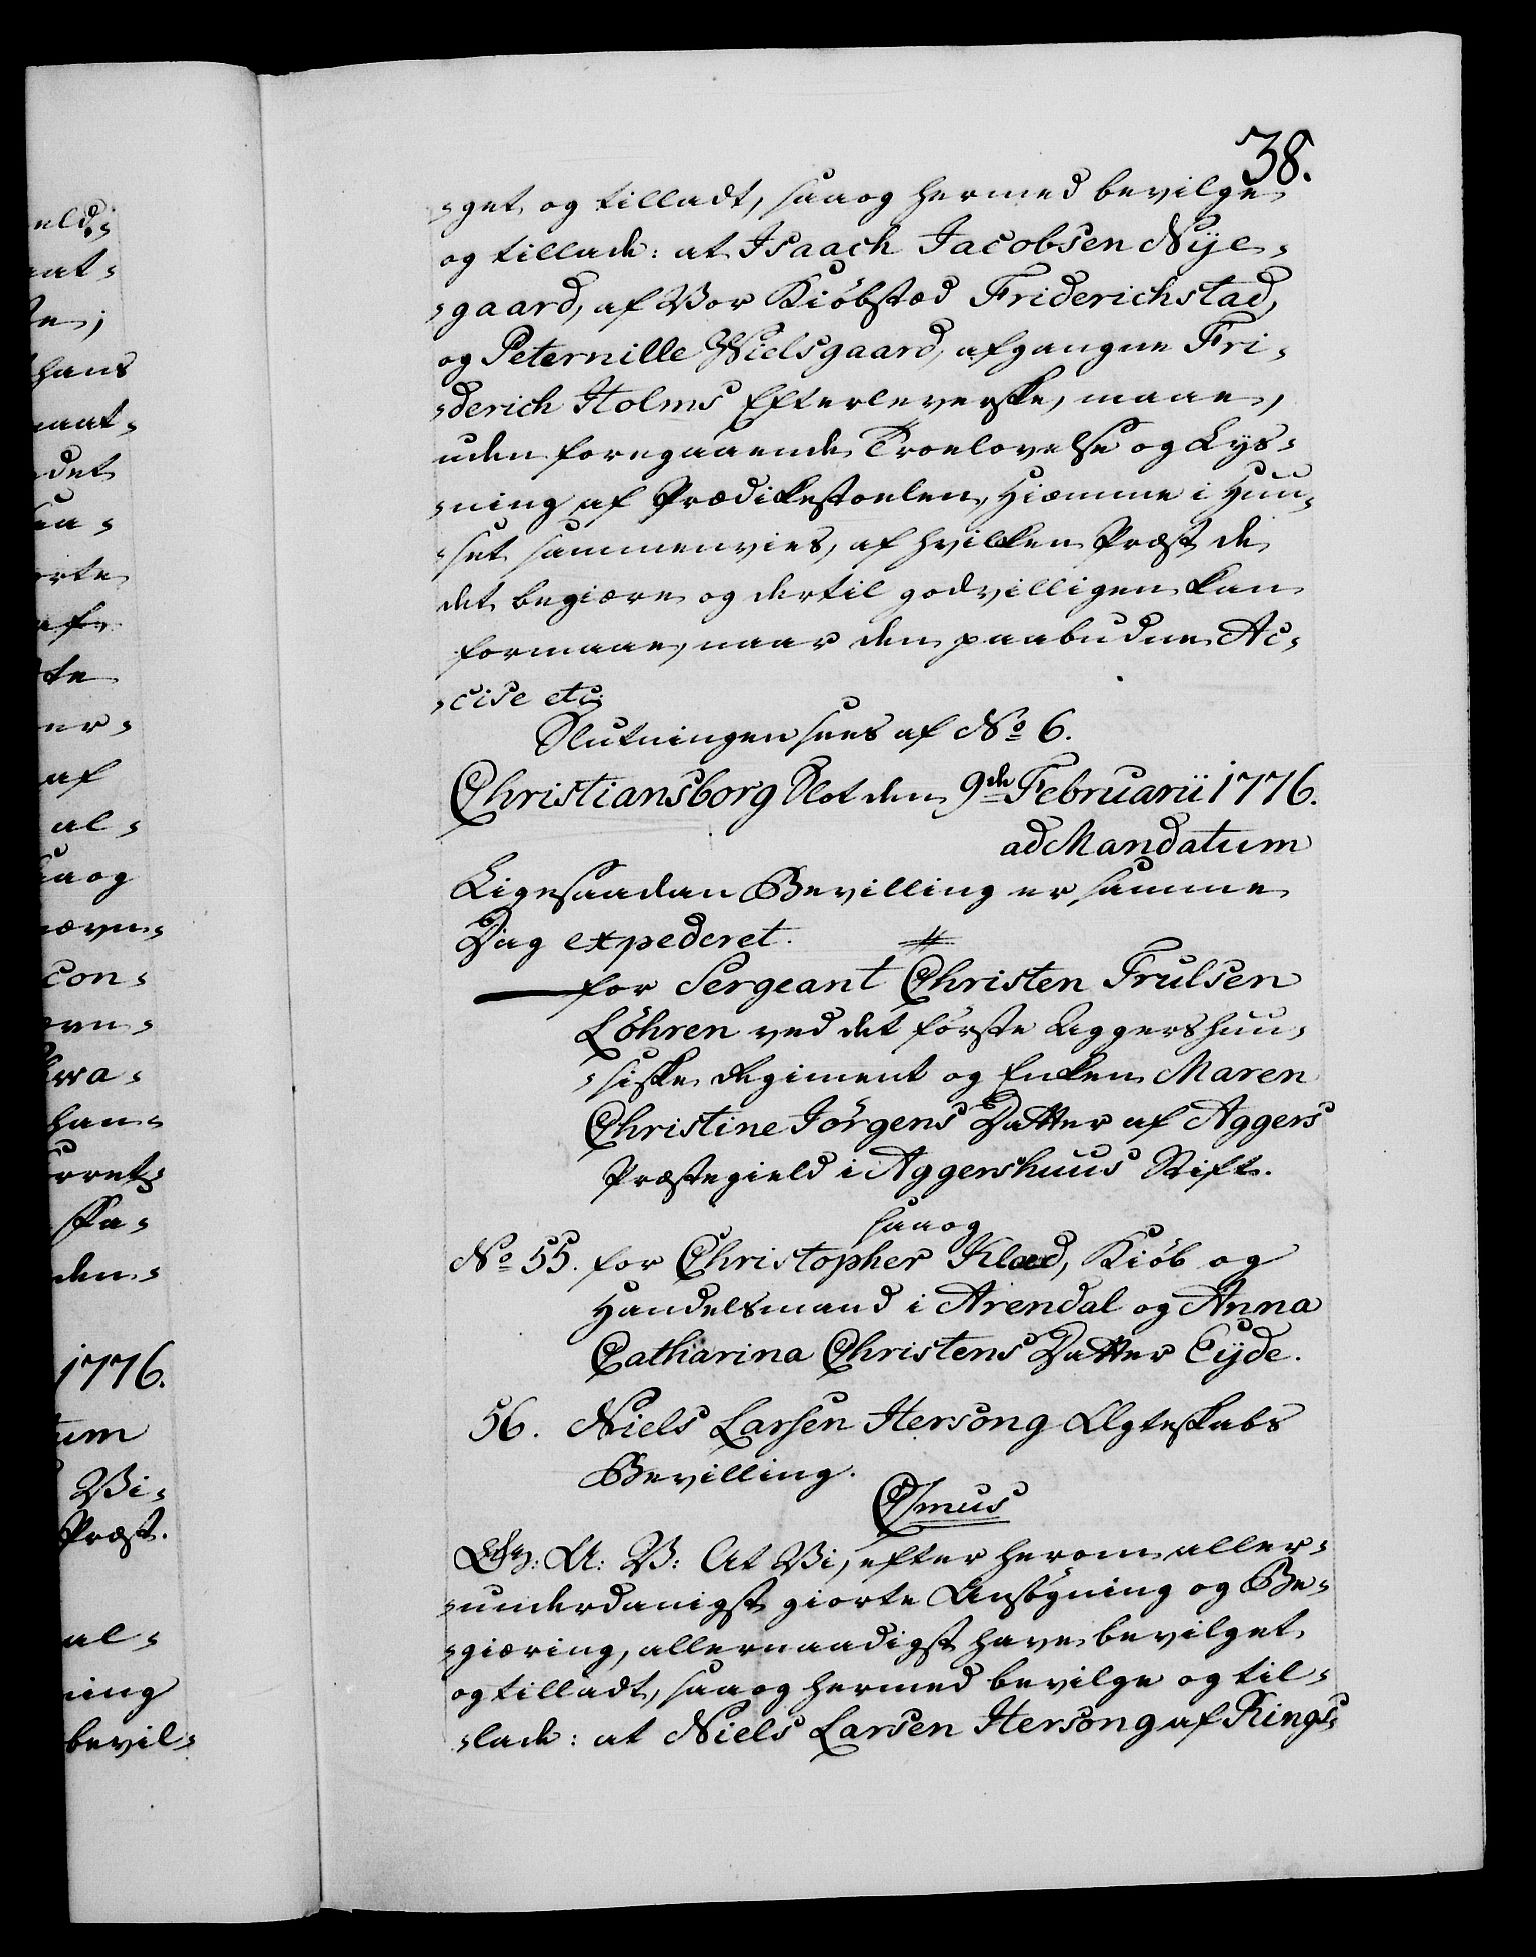 38.
-get og tilladt, saaog hermed bevilge
og tillade: at Isaach Jacobsen Nye-
-gaard, af Vor Kiöbstæd Friderichstad,
og Peternille Nielsgaard, afgangne Fri-
-derich Holms Efterleverske, maae,
uden foregaaende Troelovelse og Lys-
-ning af Prædikestoelen, Hiemme i Huu-
-set sammenvies, af hvilken Præst de
det begiære og dertil godvilligen kan
formaae, naar den paabudne Ac-
-cise etc:
Slutningen sees af No 6.
Christiansborg Slot den 9de Februarii 1776.
ad Mandatum
Ligesaadan Bevilling er samme
Dag expederet.
for Sergeant Christen Frulsen
Löhren ved det förste Aggershuu-
-siske Regiment og Enken Maren
Christine Jörgens Datter af Aggers
Præstegield i Aggershuus Stift.
saaog
No 55. for Christopher Klæd, Kiöb og
Handelsmand i Arendal og Anna
Catharina Christens Datter Eyde.
56. Niels Larsen Hersong Ægteskabs
Bevilling.
Csmus
A: V: At Vi, efter herom aller-
-underdanigst giorte Ansögning og Be-
-giæring, allernaadigst have bevilget
og tilladt, saaog hermed bevilge og til-
-lade: at Niels Larsen Hersong af Rings-
eld:
hans
det
af
al-
con-
han-
den-
1776.
um
Vi-
Præst.
al-
ning
bevil-